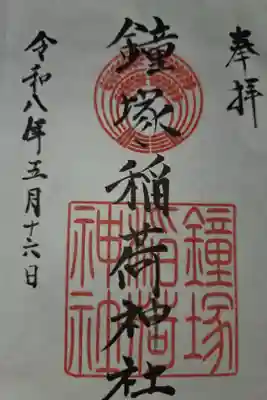 奉拝
鐘塚稲荷神社
鐘塚稲荷神社
令和八年五月十六日